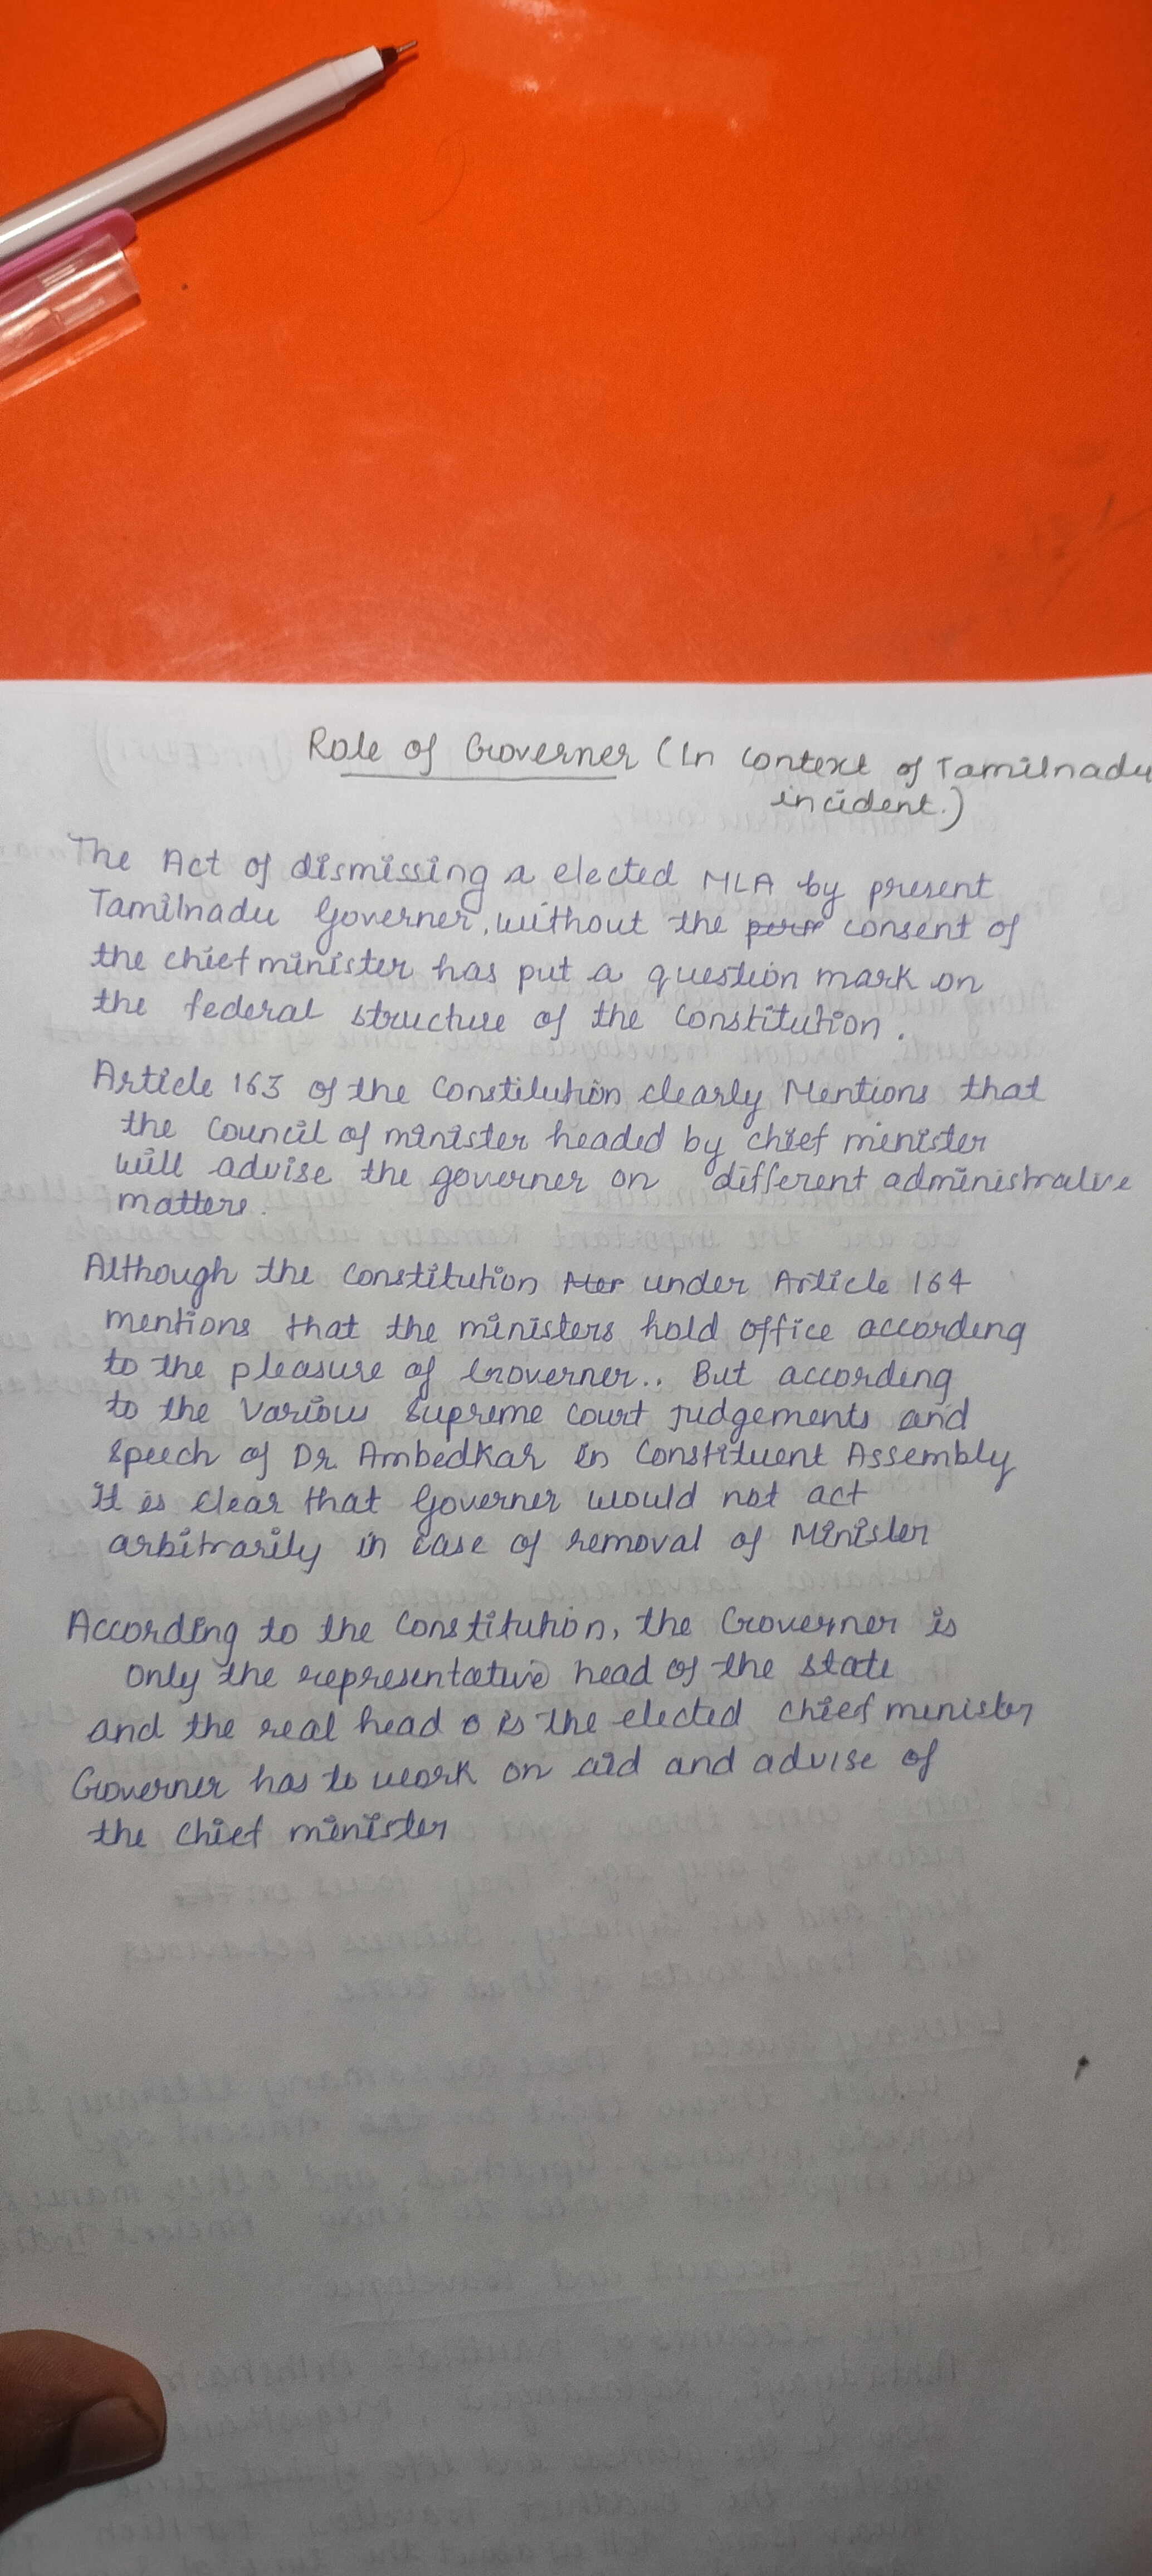 Role of Governer (In context of Tamilnadu
incident.)
The Act of dismissing a elected MLA by present
Tamilnadu Governer, without the perm consent of
the chief minister has put a question mark on
the federal structure of the Constitution.
Article 163 of the Constitution clearly Mentions that
the Council of minister headed by chief minister
will advise the governer on different administrative
matters.
Although the Constitution under Article 164
mentions that the ministers hold office according
to the pleasure of Governer.. But according
to the Various Supreme Court Judgements and
Speech of Dr Ambedkar in Constituent Assembly
It is clear that Governer would not act
arbitrarily in case of removal of Minister
According to the Constitution, the Governer is
only the representative head of the state
and the real head o is the elected chief minister
Governer has to work on aid and advise of
the Chief minister